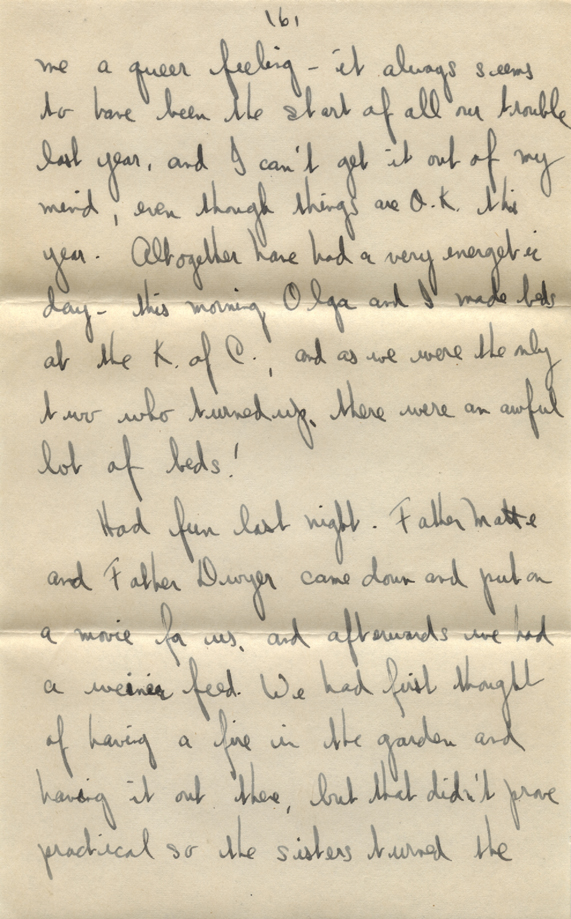 161
me a queer feeling - it always seems
to have been the start of all our trouble
last year, and I can't get it out of my
mind, even though things are O.K. this
year. Altogether have had a very energetic
day - this morning Olga and I made beds
at the K. of C., and as we were the only
two who turned up, there were an awful
lot of beds!
Had fun last night. Father Matte
and Father Dwyer came down and put on
a movie for us, and afterwards we had
a weiner feed. We had first thought
of having a fire in the garden and
having it out there, but that didn't prove
practical so the sisters turned the